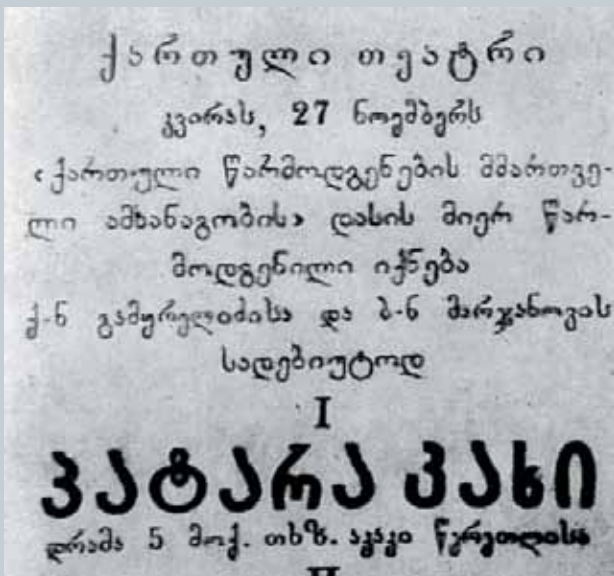 ქართული თეატრი
კვირას, 27 ნოემბერს
«ქართული წარმოდგენების მმართვე-
ლი ამხანაგობის» დასის მიერ წარ-
მოდგენილი იქნება
ქ-ნ გამყრელიძისა და ბ-ნ მარჯანოვის
სადებიუტოდ
I
პატარა კახი
დრამა 5 მოქ. თხზ. აკაკი წერეთლისა
II